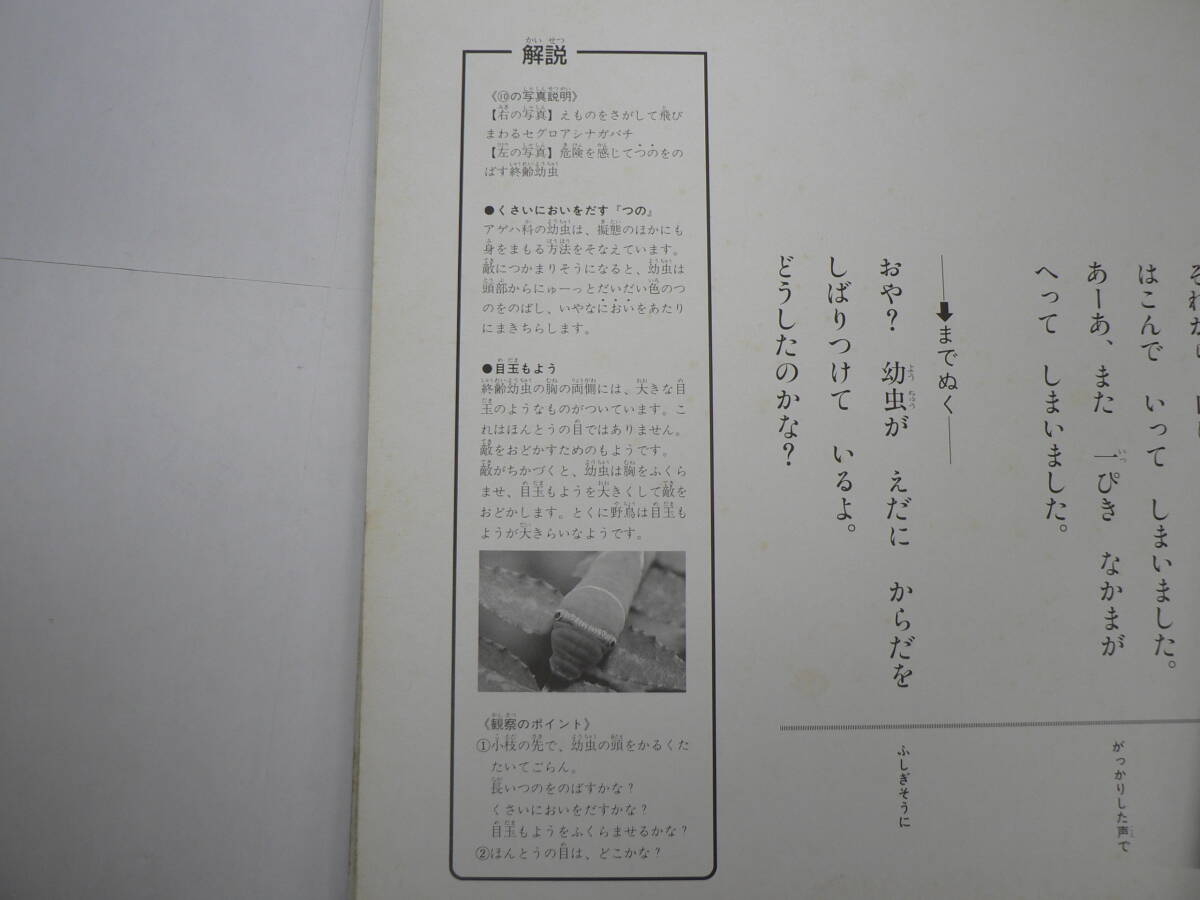 解説
《⑩の写真説明》
【右の写真】えものをさがして飛び
まわるセグロアシナガバチ
【左の写真】危険を感じてつのをの
ばす終齢幼虫
●くさいにおいをだす『つの』
アゲハ科の幼虫は、擬態のほかにも
身をまもる方法をそなえています。
敵につかまりそうになると、幼虫は
頭部からにゅーっとだいだい色のつ
のをのばし、いやなにおいをあたり
にまきちらします。
●目玉もよう
終齢幼虫の胸の両側には、大きな目
玉のようなものがついています。こ
れはほんとうの目ではありません。
敵をおどかすためのもようです。
敵がちかづくと、幼虫は胸をふくら
ませ、目玉もようを大きくして敵を
おどかします。とくに野鳥は目玉も
ようが大きらいなようです。
《観察のポイント》
①小枝の先で、幼虫の頭をかるくた
たいてごらん。
長いつのをのばすかな？
くさいにおいをだすかな？
目玉もようをふくらませるかな？
②ほんとうの目は、どこかな？
はこんで いって しまいました。
あーあ、また 一ぴき なかまが
へって しまいました。
――➡までぬく――
おや？ 幼虫が えだに からだを
しばりつけて いるよ。
どうしたのかな？
がっかりした声で
ふしぎそうに